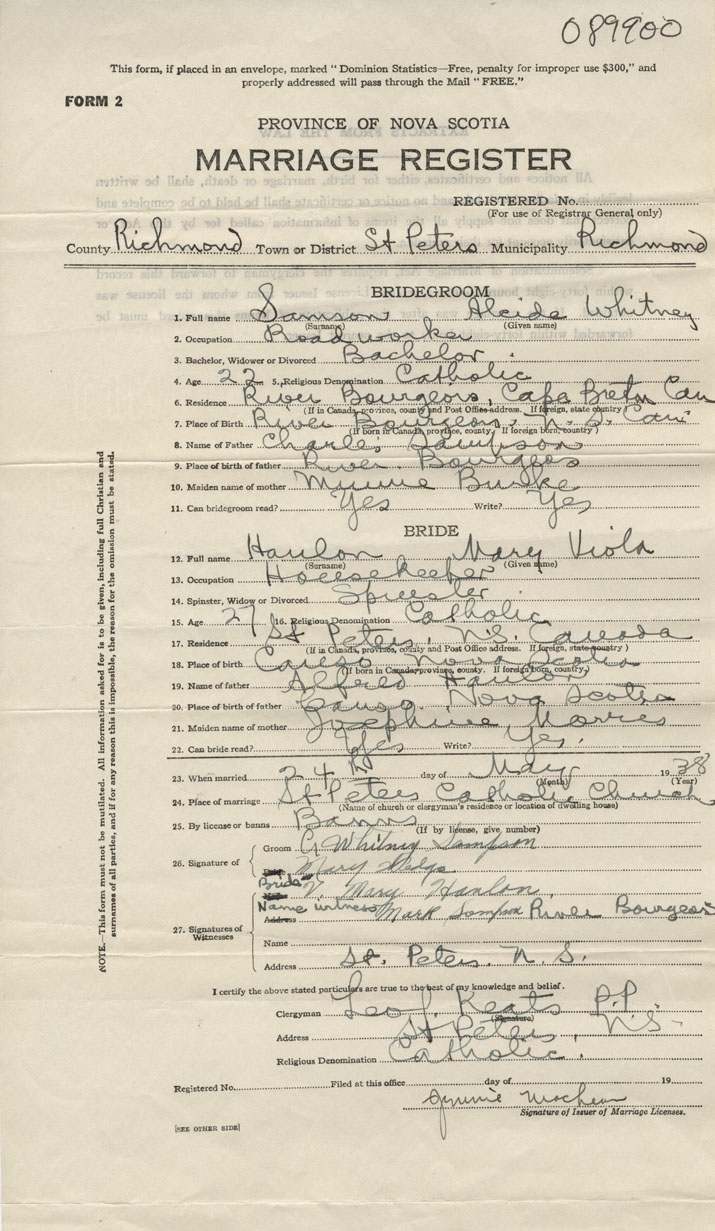 089900
This form, if placed in an envelope, marked "Dominion Statistics—Free, penalty for improper use $300," and
properly addressed will pass through the Mail "FREE."
FORM 2
PROVINCE OF NOVA SCOTIA
MARRIAGE REGISTER
REGISTERED No.
(For use of Registrar General only)
County Richmond Town or District St Peters Municipality Richmond
BRIDEGROOM
1. Full name Samson Alcide Whitney
(Surname) (Given name)
2. Occupation Road worker
3. Bachelor, Widower or Divorced Bachelor.
4. Age 22 5. Religious Denomination Catholic
6. Residence River Bourgeois, Cape Breton Can
(If in Canada, province, county and Post Office address. If foreign, state country)
7. Place of Birth River Bourgeois, N.S. Can
(If born in Canada, province, county. If foreign born, country)
8. Name of Father Charles Sampson
9. Place of birth of father River Bourgeos
10. Maiden name of mother Minnie Burke
11. Can bridegroom read? Yes Write? Yes
BRIDE
12. Full name Hanlon Mary Viola
(Surname) (Given name)
13. Occupation Housekeeper
14. Spinster, Widow or Divorced Spinster
15. Age 27 16. Religious Denomination Catholic
17. Residence St Peters, N.S. Canada
(If in Canada, province, county and Post Office address. If foreign, state country)
18. Place of birth Canso Nova Scotia
(If born in Canada, province, county. If foreign born, country.)
19. Name of father Alfred Hanlon
20. Place of birth of father Canso, Nova Scotia
21. Maiden name of mother Josephine Morris
22. Can bride read? Yes Write? Yes.
23. When married 24th day of May 1938
(Month) (Year)
24. Place of marriage St Peters Catholic Church
(Name of church or clergyman's residence or location of dwelling house)
25. By license or banns Banns
(If by license, give number)
26. Signature of
Groom A Whitney Sampson
Mary
Bride V. Mary Hanlon
27. Signatures of Witnesses
Name witness Mark Sampson River Bourgeois
Address
Name
Address St. Peters, N.S.
I certify the above stated particulars are true to the best of my knowledge and belief.
Clergyman Leo J. Keats P.P.
(Signature)
Address St Peters, N.S.
Religious Denomination Catholic.
Registered No. Filed at this office day of 19
Signature of Issuer of Marriage Licenses.
[SEE OTHER SIDE]
NOTE.—This form must not be mutilated. All information asked for is to be given, including full Christian and
surnames of all parties, and if for any reason this is impossible, the reason for the omission must be stated.